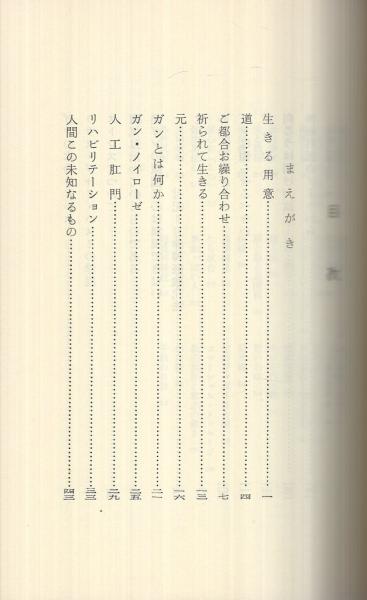 目次
まえがき
生きる用意……一
道……四
ご都合お繰り合わせ……七
祈られて生きる……一三
元……一六
ガンとは何か……二一
ガン・ノイローゼ……二五
人工肛門……二九
リハビリテーション……三三
人間この未知なるもの……四三